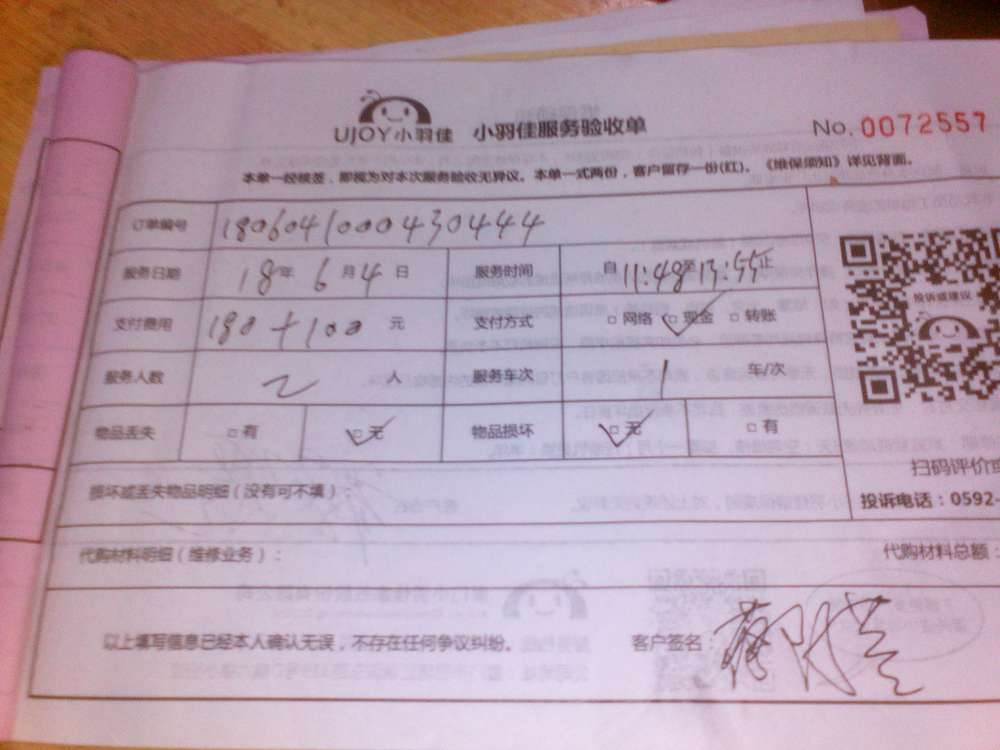 UJOY小羽佳 小羽佳服务验收单 No. 0072557
本单一经核签，即视为对本次服务验收无异议。本单一式两份，客户留存一份(红)。《维保须知》详见背面。
订单编号 1806041000430444
服务日期 18年 6月4日 服务时间 自11:48至13:55止
支付费用 180+100 元 支付方式 □网络 ☑现金 □转账
投诉或建议
服务人数 2 人 服务车次 1 车/次
物品丢失 □有 ☑无 物品损坏 ☑无 □有
扫码评价或
损坏或丢失物品明细（没有可不填）：
投诉电话：0592-
代购材料明细（维修业务）： 代购材料总额：
以上填写信息已经本人确认无误，不存在任何争议纠纷。 客户签名：